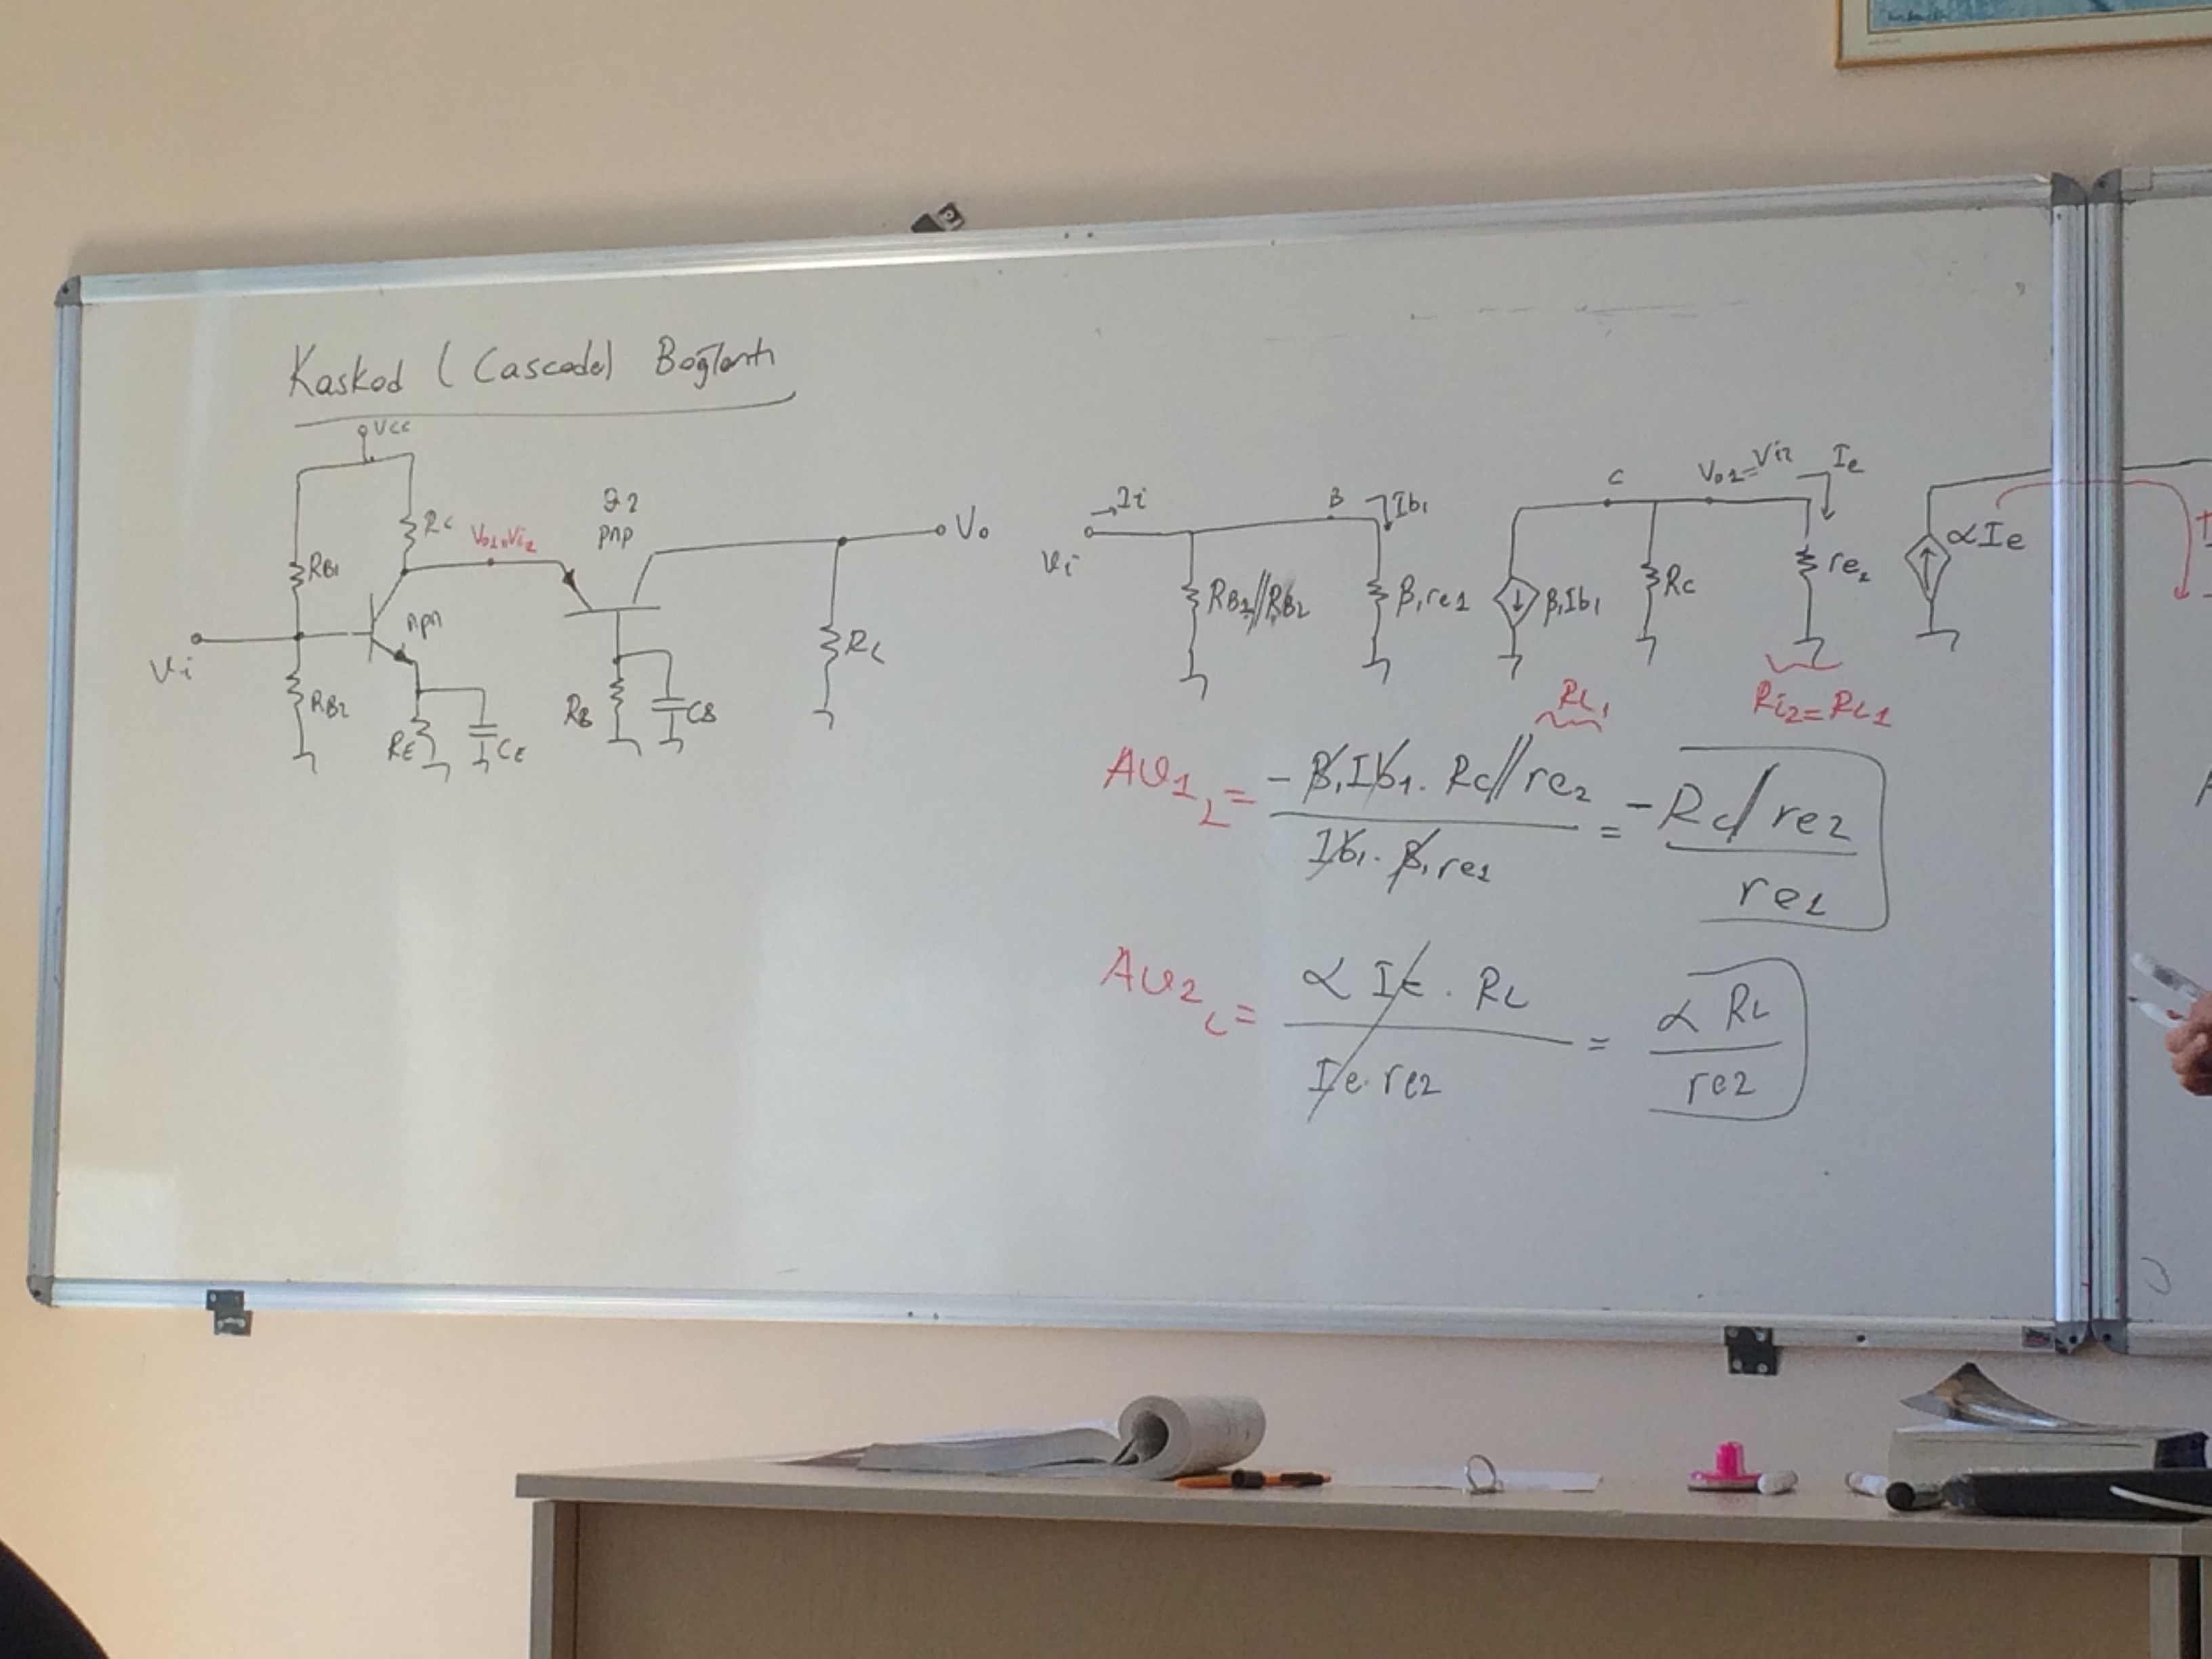 Kaskod (Cascode) Bağlantı
Vcc
RC
RB1
Vo1=Vi2
Q2
pnp
Vo
npn
Vi
RB2
RE
CE
RB
CB
RL
Ii
Vi
B
Ib1
RB1//RB2
β1re1
β1Ib1
C
Rc
Vo1=Vi2
Ie
re2
αIe
RL1
Ri2=RL1
AV1L = -β1Ib1.Rc//re2 / Ib1.β1re1 = -Rc//re2 / re1
AV2L = αIe.RL / Ie.re2 = αRL / re2